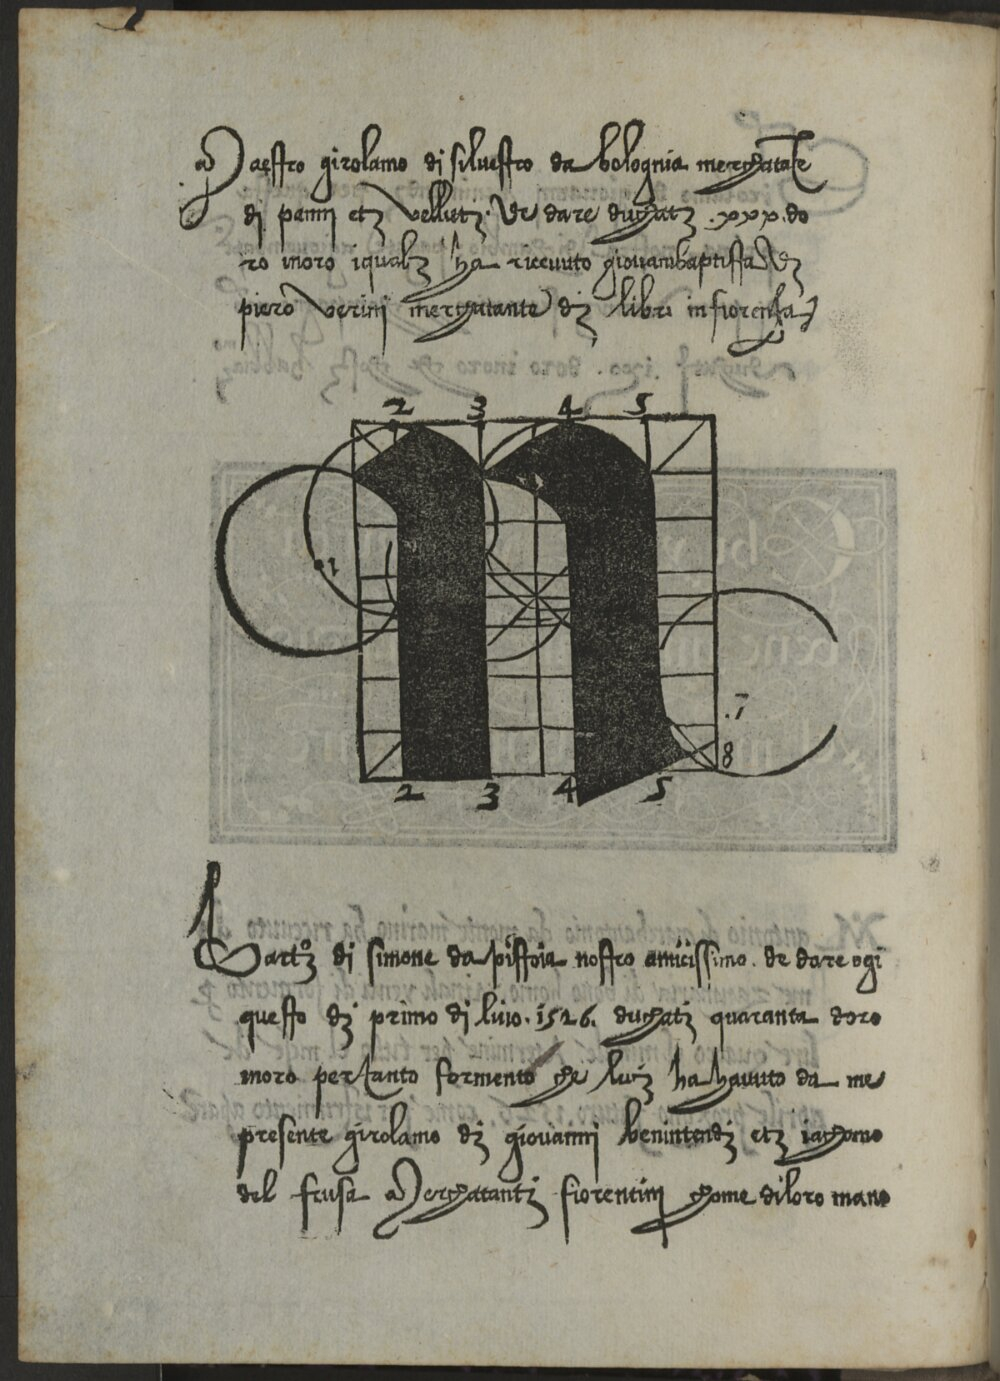 Maestro girolamo di silvestro da bolognia merchatate
di panni et velluti. de dare duchati .xxx. do
ro inoro iquali ha ricevuto giovambaptista di
piero verini merchatante di libri infiorenza
2 3 4 5
1
.7
8
2 3 4 5
Barto di simone da pistoia nostro amicissimo. de dare ogi
questo di primo di luio. 1526. duchati quaranta doro
inoro pertanto formento che lui ha havuto da me
presente girolamo di giovanni benintendi et iachomo
del frusa Merchatanti fiorentini chome diloro mano